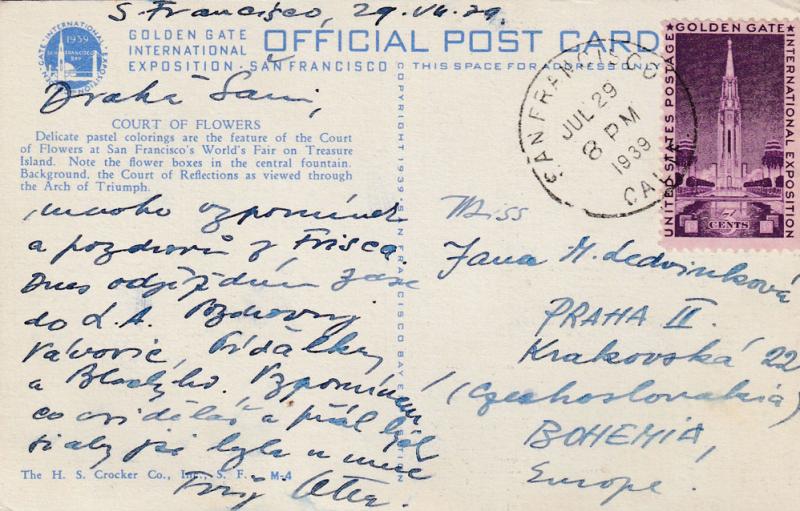 S. Francisco, 29. VII. 39.
GOLDEN GATE
INTERNATIONAL
EXPOSITION · SAN FRANCISCO
OFFICIAL POST CARD
THIS SPACE FOR ADDRESS ONLY
GOLDEN GATE INTERNATIONAL EXPOSITION
1939
SAN FRANCISCO
BAY
Drahá
COURT OF FLOWERS
Delicate pastel colorings are the feature of the Court
of Flowers at San Francisco's World's Fair on Treasure
Island. Note the flower boxes in the central fountain.
Background, the Court of Reflections as viewed through
the Arch of Triumph.
mnoho vzpomínek
a pozdravů z Frisca.
Dnes odjíždím zase
do L.A. Pozdravuj
a Vzpomínám
co a
The H. S. Crocker Co., Inc., S. F. M-4
COPYRIGHT 1939 SAN FRANCISCO BAY
SAN FRANCISCO
JUL 29
8 PM
1939
CALIF.
UNITED STATES POSTAGE
GOLDEN GATE
INTERNATIONAL EXPOSITION
CENTS
Miss
Jana M. Ledvinková
PRAHA II.
Krakovská 22
(Czechoslovakia)
BOHEMIA,
Europe.